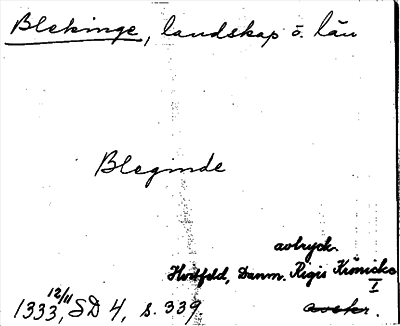 Blekinge, landskap o. län
Bleginde
avtryck.
Hvitfeld, Danm. Regis Krönicke
I
1333 12/11, SD 4, s. 339 avskr.